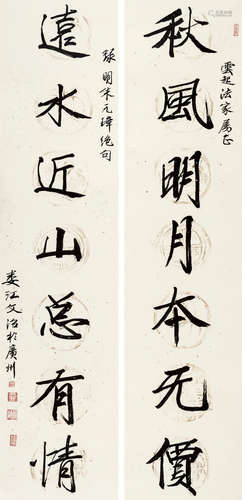 秋風明月本无價
雲起法家屬正
遠水近山总有情
录明朱元璋绝句
娄江文治於廣州